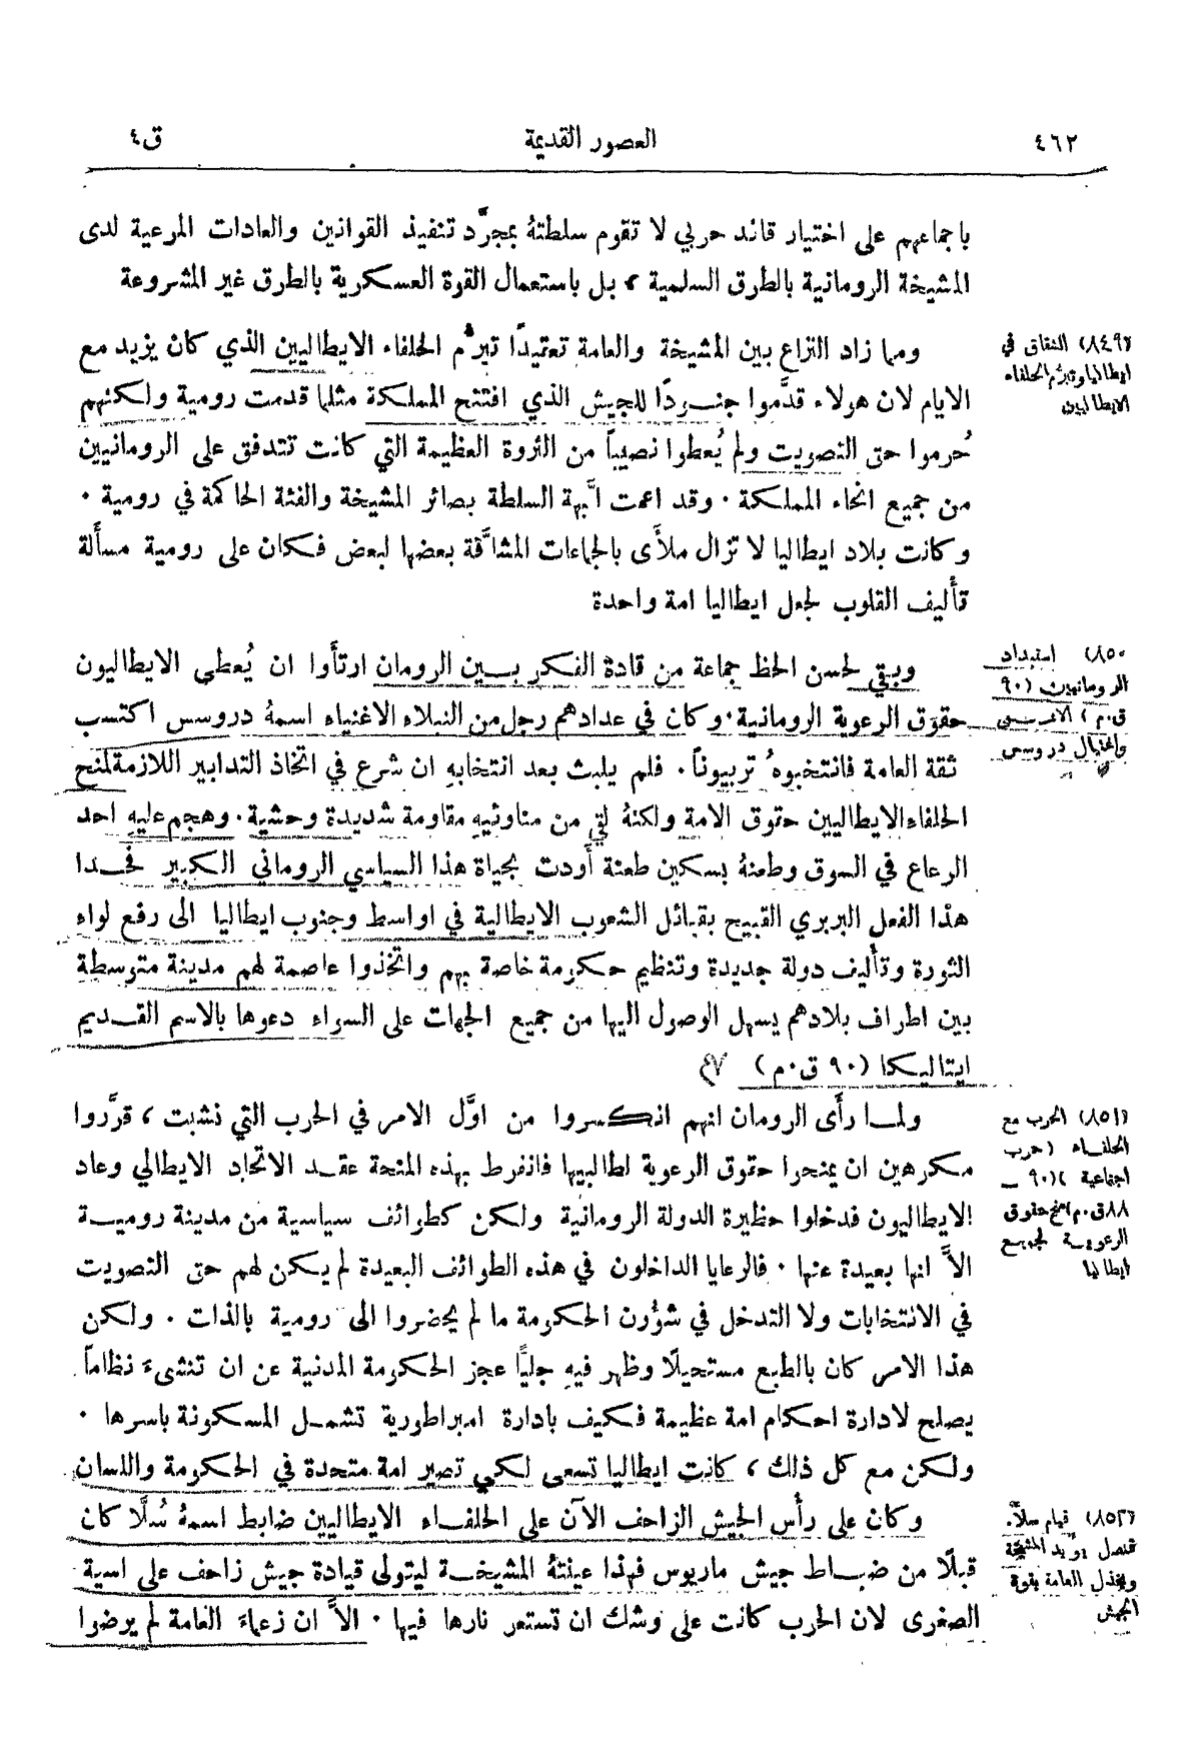 ٤٦٢
العصور القديمة
ق٤
باجماعهم على اختيار قائد حربي لا تقوم سلطتهُ بمجرَّد تنفيذ القوانين والعادات المرعية لدى
المشيخة الرومانية بالطرق السلمية ، بل باستعمال القوة العسكرية بالطرق غير المشروعة
(٨٤٩) الشقاق في
ايطاليا وتبرُّم الحلفاء
الايطاليين
ومما زاد النزاع بين المشيخة والعامة تعقيدًا تبرُّم الحلفاء الايطاليين الذي كان يزيد مع
الايام لان هولاء قدَّموا جنودًا للجيش الذي افتتح المملكة مثلما قدمت رومية ولكنهم
حُرموا حق التصويت ولم يُعطوا نصيباً من الثروة العظيمة التي كانت تتدفق على الرومانيين
من جميع انحاء المملكة · وقد اعمت ابَّهة السلطة بصائر المشيخة والفئة الحاكمة في رومية ·
وكانت بلاد ايطاليا لا تزال ملأَى بالجماعات المشاقَّة بعضها لبعض فكان على رومية مسأَلة
تأليف القلوب لجعل ايطاليا امة واحدة
(٨٥٠) استبداد
الرومانيين (٩٠
ق٠م)
واغتيال دروسس
وبقي لحسن الحظ جماعة من قادة الفكر بين الرومان ارتأَوا ان يُعطى الايطاليون
حقوق الرعوية الرومانية · وكان في عدادهم رجل من النبلاء الاغنياء اسمهُ دروسس اكتسب
ثقة العامة فانتخبوهُ تربيوناً · فلم يلبث بعد انتخابهِ ان شرع في اتخاذ التدابير اللازمة لمنح
الحلفاء الايطاليين حقوق الامة ولكنهُ لقي من مناوئيهِ مقاومة شديدة وحشية · وهجم عليهِ احد
الرعاع في السوق وطعنهُ بسكين طعنة أَودت بحياة هذا السياسي الروماني الكبير فحدا
هذا الفعل البربري القبيح بقبائل الشعوب الايطالية في اواسط وجنوب ايطاليا الى رفع لواء
الثورة وتأليف دولة جديدة وتنظيم حكومة خاصة بهم واتخذوا عاصمة لهم مدينة متوسطة
بين اطراف بلادهم يسهل الوصول اليها من جميع الجهات على السواء دعوها بالاسم القديم
ايتاليكا (٩٠ ق٠م)
(٨٥١) الحرب مع
الحلفاء (حرب
اجتماعية) (٩٠ –
٨٨ ق٠م) منح حقوق
الرعوية لجميع
ايطاليا
ولما رأَى الرومان انهم انكسروا من اوَّل الامر في الحرب التي نشبت ، قرَّروا
مكرهين ان يمنحوا حقوق الرعوية لطالبيها فانفرط بهذه المنحة عقد الاتحاد الايطالي وعاد
الايطاليون فدخلوا حظيرة الدولة الرومانية ولكن كطوائف سياسية من مدينة رومية
الاَّ انها بعيدة عنها · فالرعايا الداخلون في هذه الطوائف البعيدة لم يكن لهم حق التصويت
في الانتخابات ولا التدخل في شؤُون الحكومة ما لم يحضروا الى رومية بالذات · ولكن
هذا الامر كان بالطبع مستحيلًا وظهر فيهِ جليًّا عجز الحكومة المدنية عن ان تنشىءَ نظاماً
يصلح لادارة احكام امة عظيمة فكيف بادارة امبراطورية تشمل المسكونة باسرها ·
ولكن مع كل ذلك ، كانت ايطاليا تسعى لكي تصير امة متحدة في الحكومة واللسان
(٨٥٢) قيام سلاَّ
قنصل يؤيد المشيخة
ويخذل العامة بقوة
الجيش
وكان على رأْس الجيش الزاحف الآن على الحلفاء الايطاليين ضابط اسمهُ سُلَّا كان
قبلًا من ضباط جيش ماريوس فهذا عينتهُ المشيخة ليتولى قيادة جيش زاحف على اسية
الصغرى لان الحرب كانت على وشك ان تستعر نارها فيها · الاَّ ان زعماءَ العامة لم يرضوا